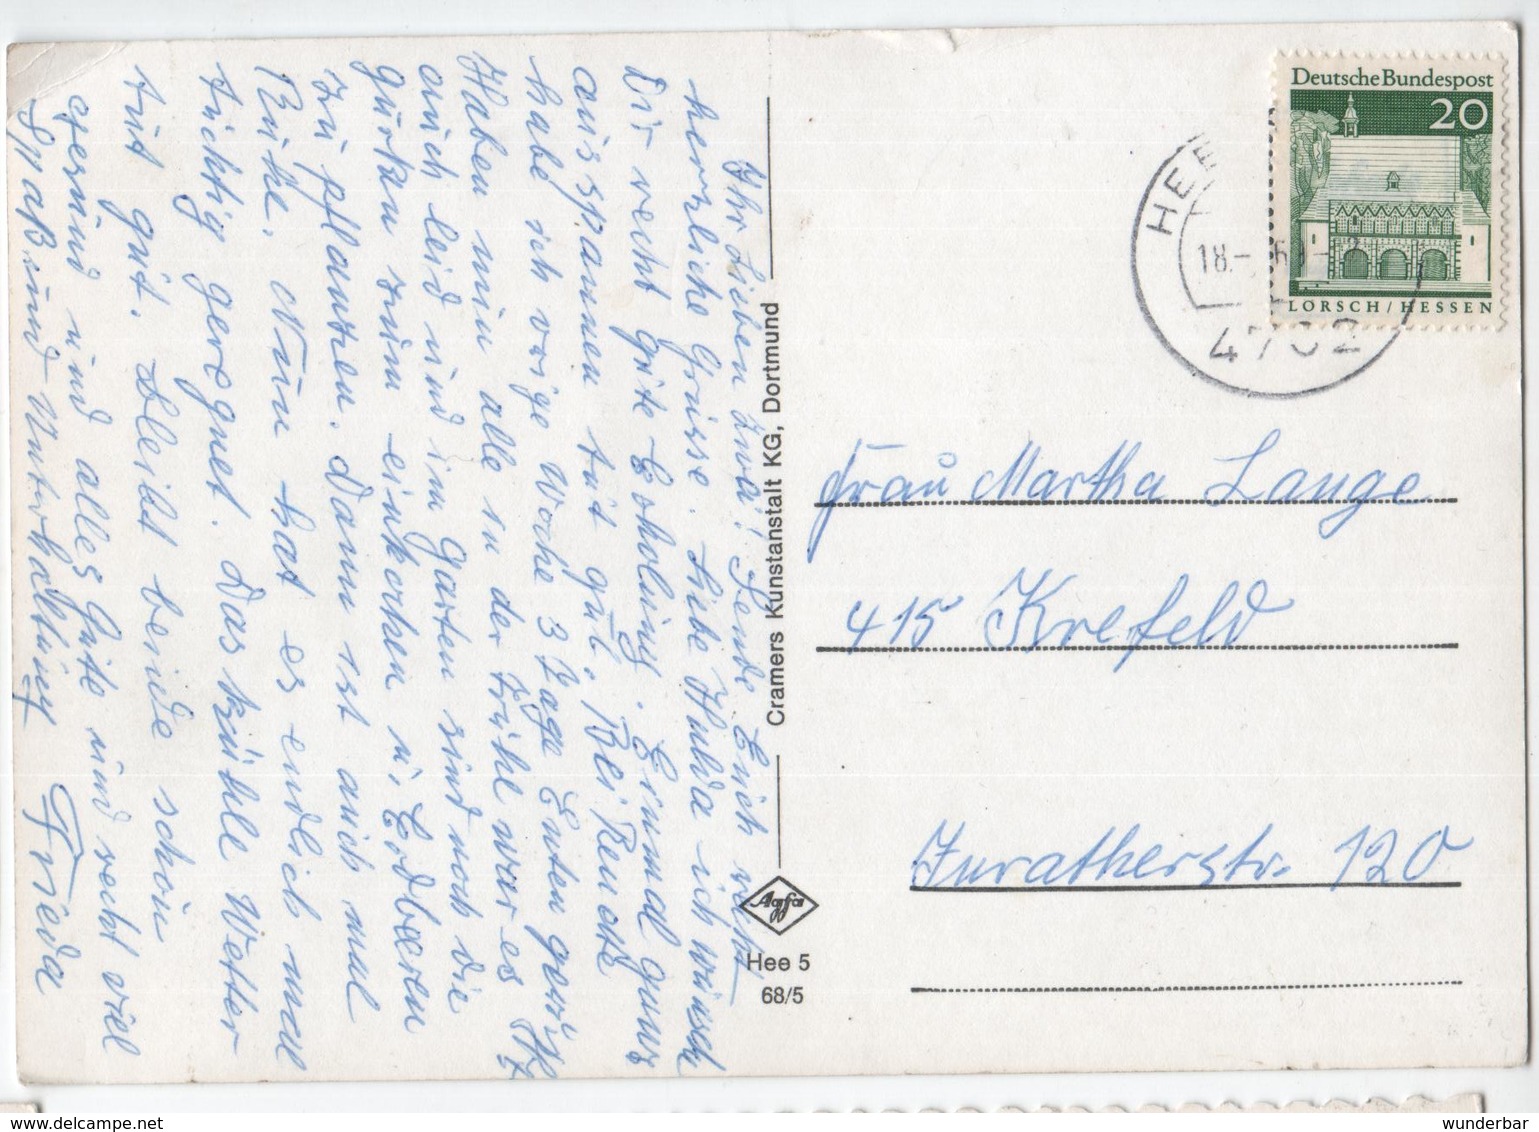 Ihr Lieben Zwei! Sende Euch recht
herzliche Grüsse. Liebe Hulda ich wünsch
Dir recht gute Erholung. Einmal ganz
ausspannen tut gut. Bei Renate
habe ich vorige Woche 3 Tage Enten
Haben mir alle in der Früh war es
auch leid und im Garten sind noch die
Gurken zum einkochen u. Erdbeeren
zu pflanzen. Dann ist auch mal
Ruhe. Nun hat es endlich mal
tüchtig geregnet. Das kühle Wetter
tut gut. Bleibt beide schön
gesund und alles Gute und recht viel
Spaß und Unterhaltung Frieda
Cramers Kunstanstalt KG, Dortmund
Agfa
Hee 5
68/5
Deutsche Bundespost
20
LORSCH/HESSEN
HEE
18.-
4702
Frau Martha Lange
415 Krefeld
Inratherstr. 120
wunderbar